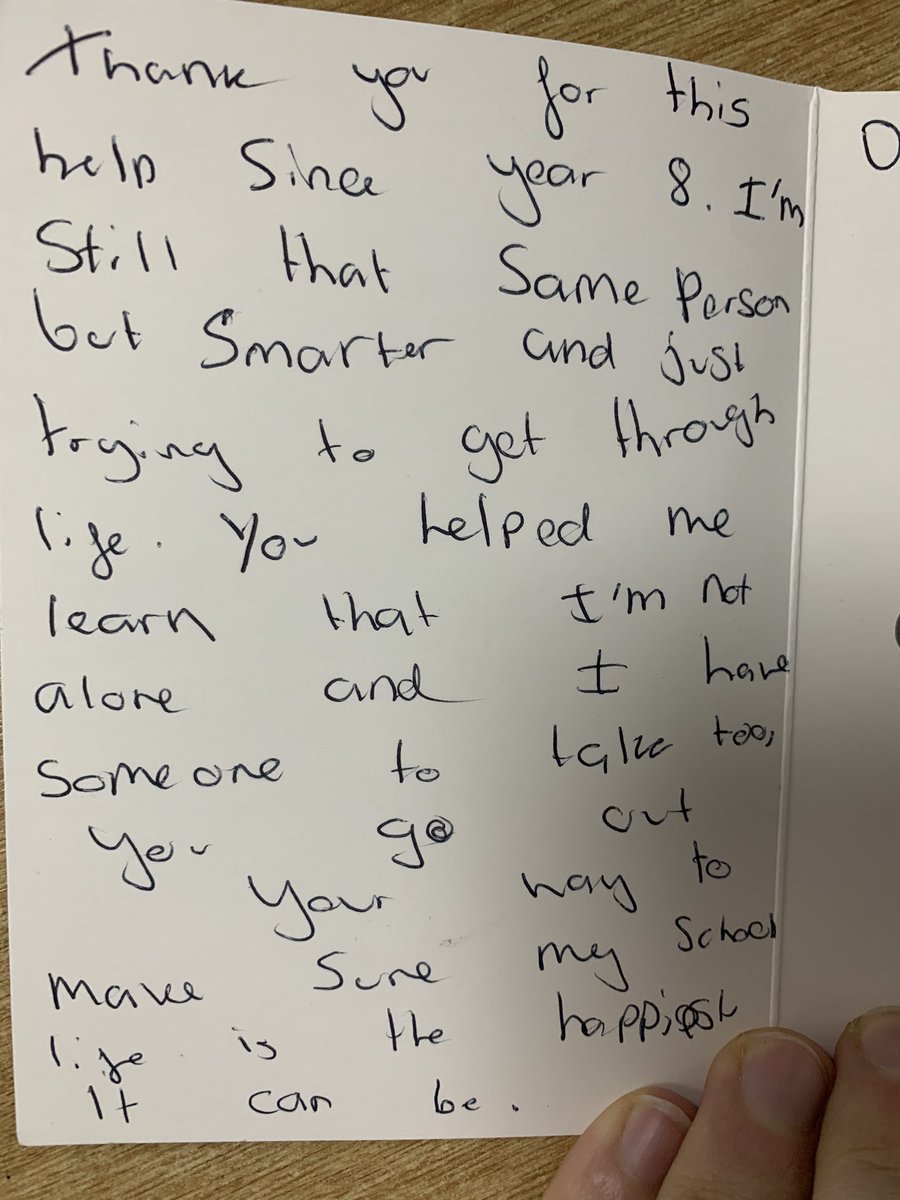 Thank you for this
help Since year 8. I'm
Still that Same Person
but Smarter and just
trying to get through
life. You helped me
learn that I'm not
alone and I have
someone to talk too,
you go out
your way to
make Sure my School
life is the happiest
It can be.